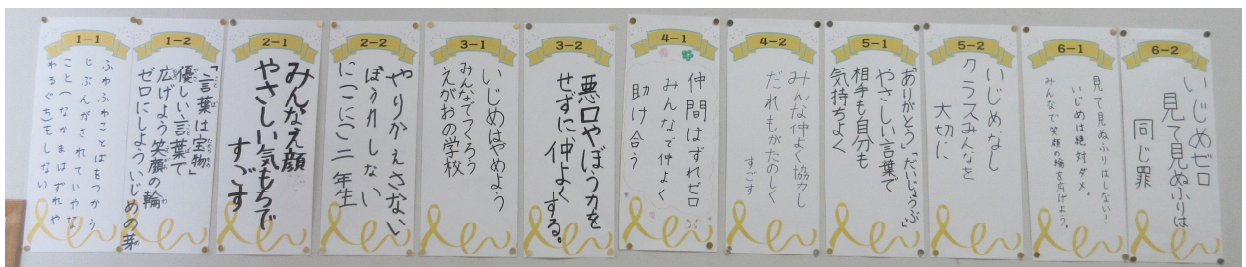 1-1
ふわふわことばをつかう
じぶんがされていやな
こと(なかまはずれや
わるぐち)をしない
1-2
「言葉は宝物」
優しい言葉で
広げよう笑顔の輪
ゼロにしよういじめの芽
2-1
みんなえ顔
やさしい気もちで
すごす
2-2
やりかえさない
ぼう力しない
にこにこ二年生
3-1
いじめはやめよう
みんなでつくろう
えがおの学校
3-2
悪口やぼう力を
せずに仲よくする。
4-1
仲間はずれゼロ
みんなで仲よく
助け合う
4-2
みんな仲よく協力し
だれもがたのしく
すごす
5-1
「ありがとう」「だいじょうぶ」
やさしい言葉で
相手も自分も
気持ちよく
5-2
いじめなし
クラスみんなを
大切に
6-1
見て見ぬふりはしない!
いじめは絶対ダメ。
みんなで笑顔の輪を広げよう。
6-2
いじめゼロ
見て見ぬふりは
同じ罪